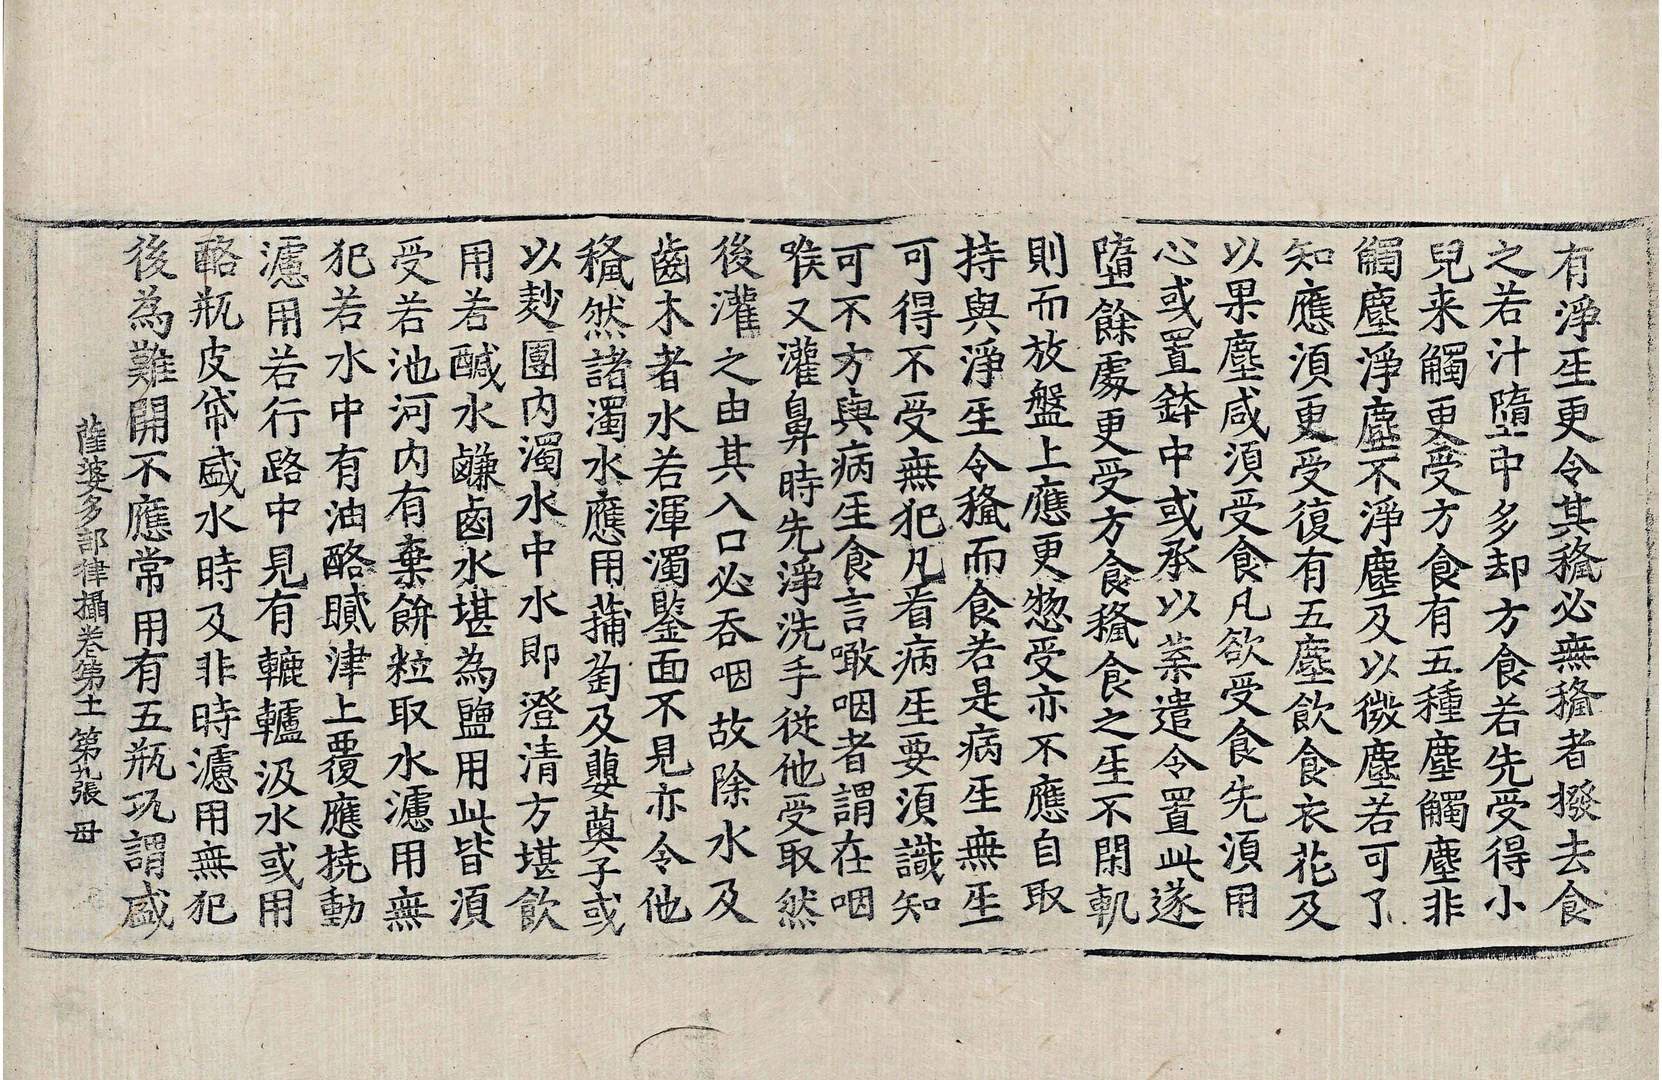 有淨𤯔更令其𥡴必無𥡴者撥去食
之若汁墮中多却方食若先受得小
兒来觸更受方食有五種塵觸塵非
觸塵淨塵不淨塵及以微塵若可了
知應湏更受復有五塵飲食衣花及
以果塵咸湏受食凡欲受食先湏用
心或置鉢中或承以葉遣令置此遂
墮餘處更受方食𥡴食之𤯔不閑軌
則而放盤上應更惣受亦不應自取
持與淨𤯔令𥡴而食若是病𤯔無𤯔
可得不受無犯凡看病𤯔要湏識知
可不方與病𤯔食言噉咽者謂在咽
喉又灌鼻時先淨洗手從他受取然
後灌之由其入口必吞咽故除水及
齒木者水若渾濁鑒面不見亦令他
𥡴然諸濁水應用蒱萄及蘡薁子或
以麨團內濁水中水即澄清方堪飲
用若醎水鹻鹵水堪為鹽用此皆湏
受若池河內有棄餅粒取水濾用無
犯若水中有油酪膩津上覆應撓動
濾用若行路中見有轆轤汲水或用
酪瓶皮帒盛水時及非時濾用無犯
後為難開不應常用有五瓶瓨謂盛
薩婆多部律攝卷第十一 第九張 毋